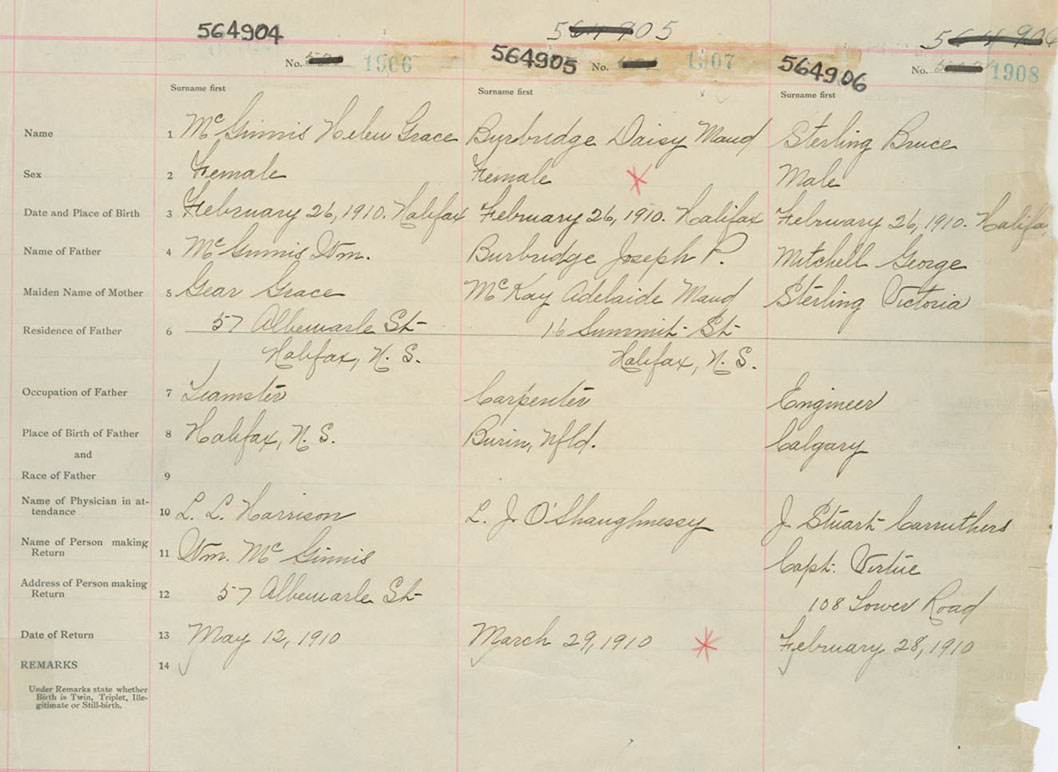 564904 564905 564906
564905 564906
No. 1906 No. 1907 No. 1908
Surname first Surname first Surname first
Name 1 McGinnis Helen Grace Burbridge Daisy Maud Sterling Bruce
Sex 2 Female Female Male
Date and Place of Birth 3 February 26, 1910. Halifax February 26, 1910. Halifax February 26, 1910. Halifa
Name of Father 4 McGinnis Wm. Burbridge Joseph P. Mitchell George
Maiden Name of Mother 5 Gear Grace McKay Adelaide Maud Sterling Victoria
Residence of Father 6 57 Albemarle St 16 Summit St
Halifax, N. S. Halifax, N. S.
Occupation of Father 7 Teamster Carpenter Engineer
Place of Birth of Father 8 Halifax, N. S. Burin, Nfld. Calgary
and
Race of Father 9
Name of Physician in at-
tendance 10 L. L. Harrison L. J. O'Shaughnessy J. Stuart Carruthers
Name of Person making
Return 11 Wm. McGinnis Capt. Virtue
Address of Person making
Return 12 57 Albemarle St 108 Lower Road
Date of Return 13 May 12, 1910 March 29, 1910 February 28, 1910
REMARKS 14
Under Remarks state whether
Birth is Twin, Triplet, Ille-
gitimate or Still-birth.